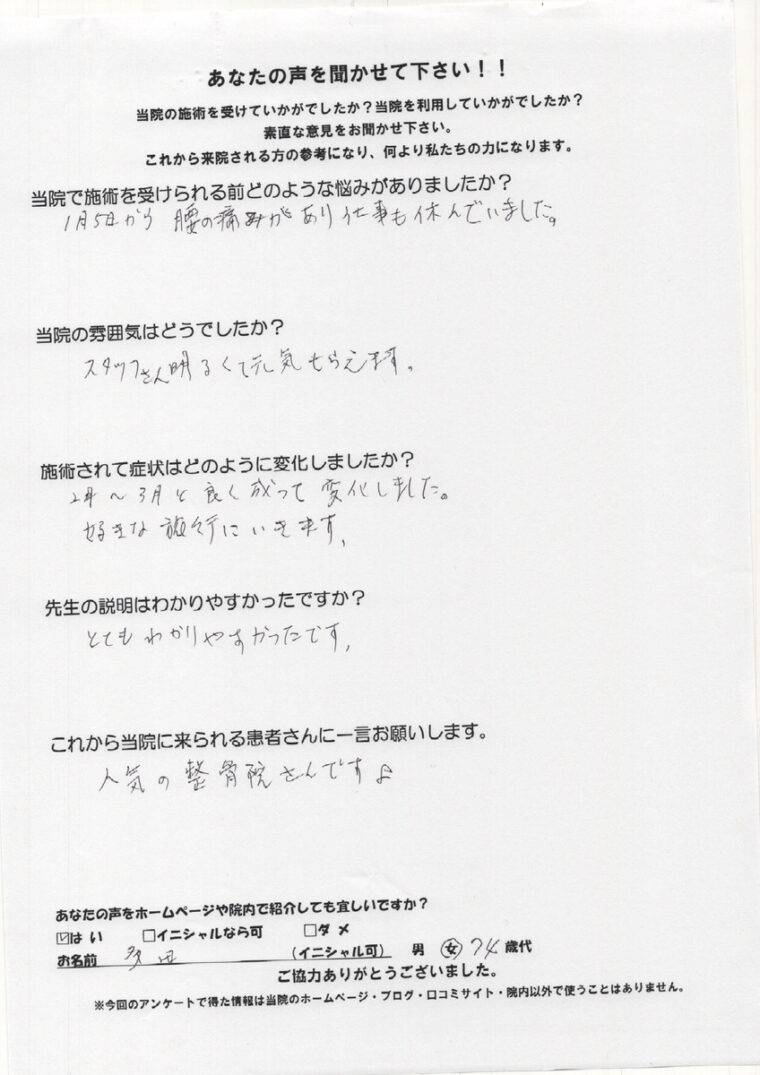 あなたの声を聞かせて下さい！！
当院の施術を受けていかがでしたか？当院を利用していかがでしたか？
素直な意見をお聞かせ下さい。
これから来院される方の参考になり、何より私たちの力になります。
当院で施術を受けられる前どのような悩みがありましたか？
1月5日から 腰の痛みがあり仕事も休んでいました。
当院の雰囲気はどうでしたか？
スタッフさん明るくて元気もらえます。
施術されて症状はどのように変化しましたか？
2月～3月と良く成って変化しました。
好きな旅行にいきます。
先生の説明はわかりやすかったですか？
とてもわかりやすかったです。
これから当院に来られる患者さんに一言お願いします。
人気の整骨院さんです♪
あなたの声をホームページや院内で紹介しても宜しいですか？
☑はい □イニシャルなら可 □ダメ
お名前 (イニシャル可) 男 女 74歳代
ご協力ありがとうございました。
※今回のアンケートで得た情報は当院のホームページ・ブログ・口コミサイト・院内以外で使うことはありません。